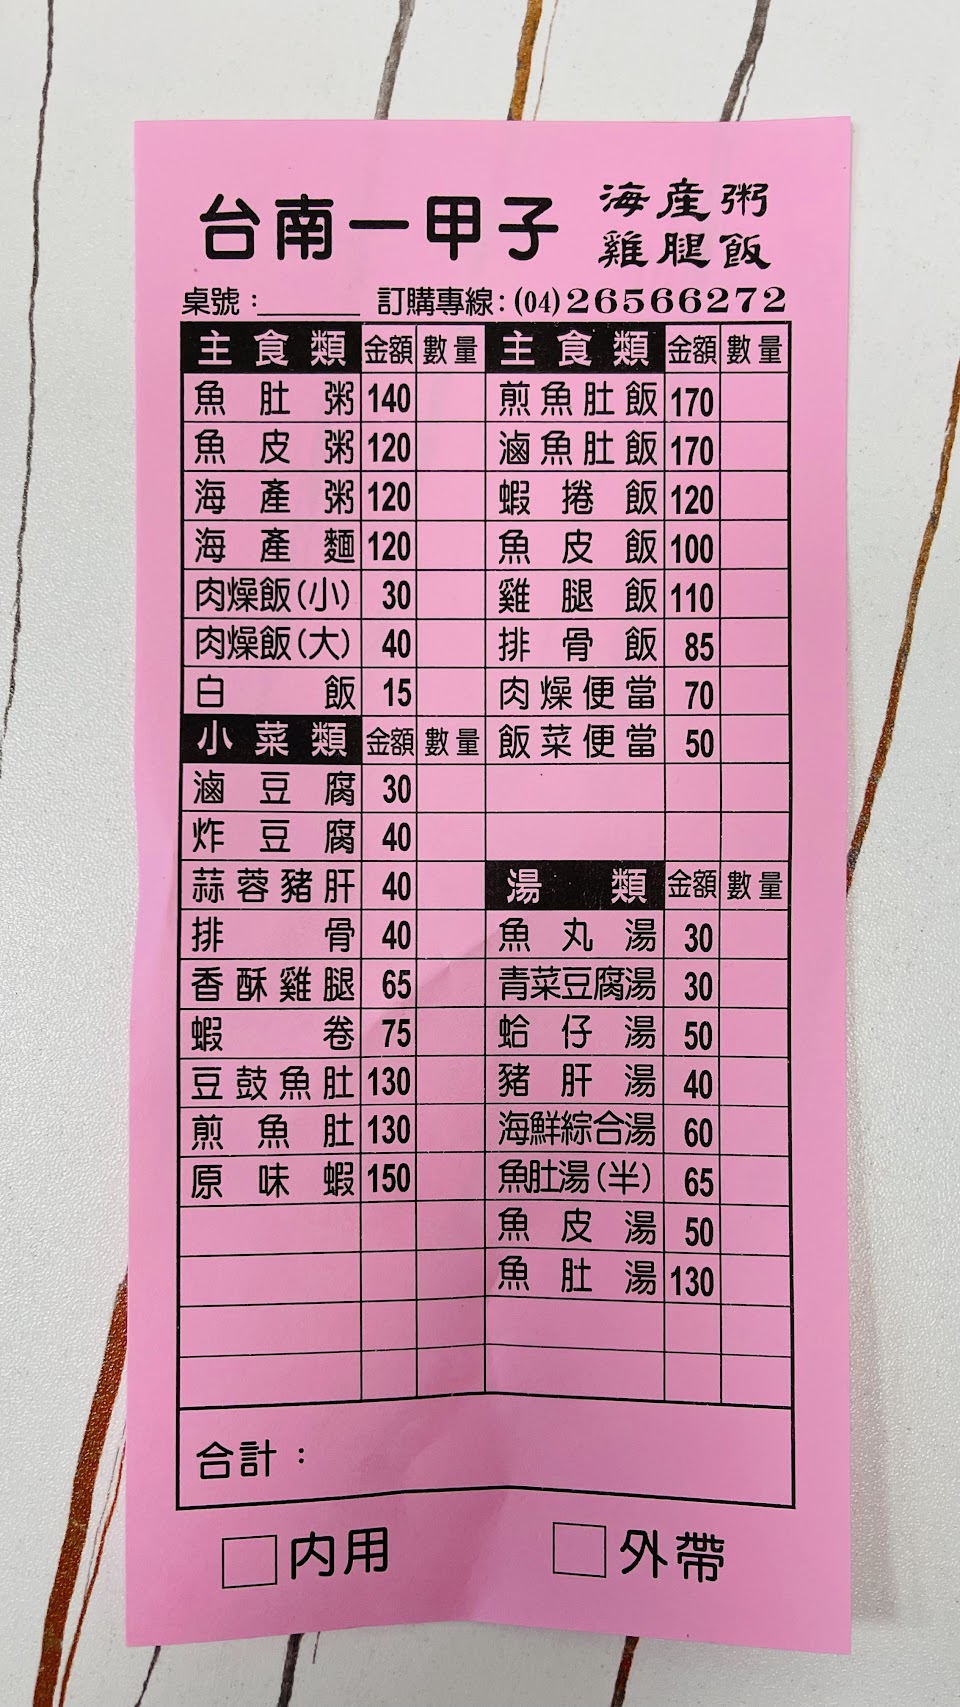 台南一甲子 海產粥
雞腿飯
桌號：______ 訂購專線：(04)26566272
主食類 金額 數量 主食類 金額 數量
魚肚粥 140 煎魚肚飯 170
魚皮粥 120 滷魚肚飯 170
海產粥 120 蝦捲飯 120
海產麵 120 魚皮飯 100
肉燥飯(小) 30 雞腿飯 110
肉燥飯(大) 40 排骨飯 85
白飯 15 肉燥便當 70
小菜類 金額 數量 飯菜便當 50
滷豆腐 30
炸豆腐 40
蒜蓉豬肝 40 湯類 金額 數量
排骨 40 魚丸湯 30
香酥雞腿 65 青菜豆腐湯 30
蝦卷 75 蛤仔湯 50
豆鼓魚肚 130 豬肝湯 40
煎魚肚 130 海鮮綜合湯 60
原味蝦 150 魚肚湯(半) 65
魚皮湯 50
魚肚湯 130
合計：
內用 外帶